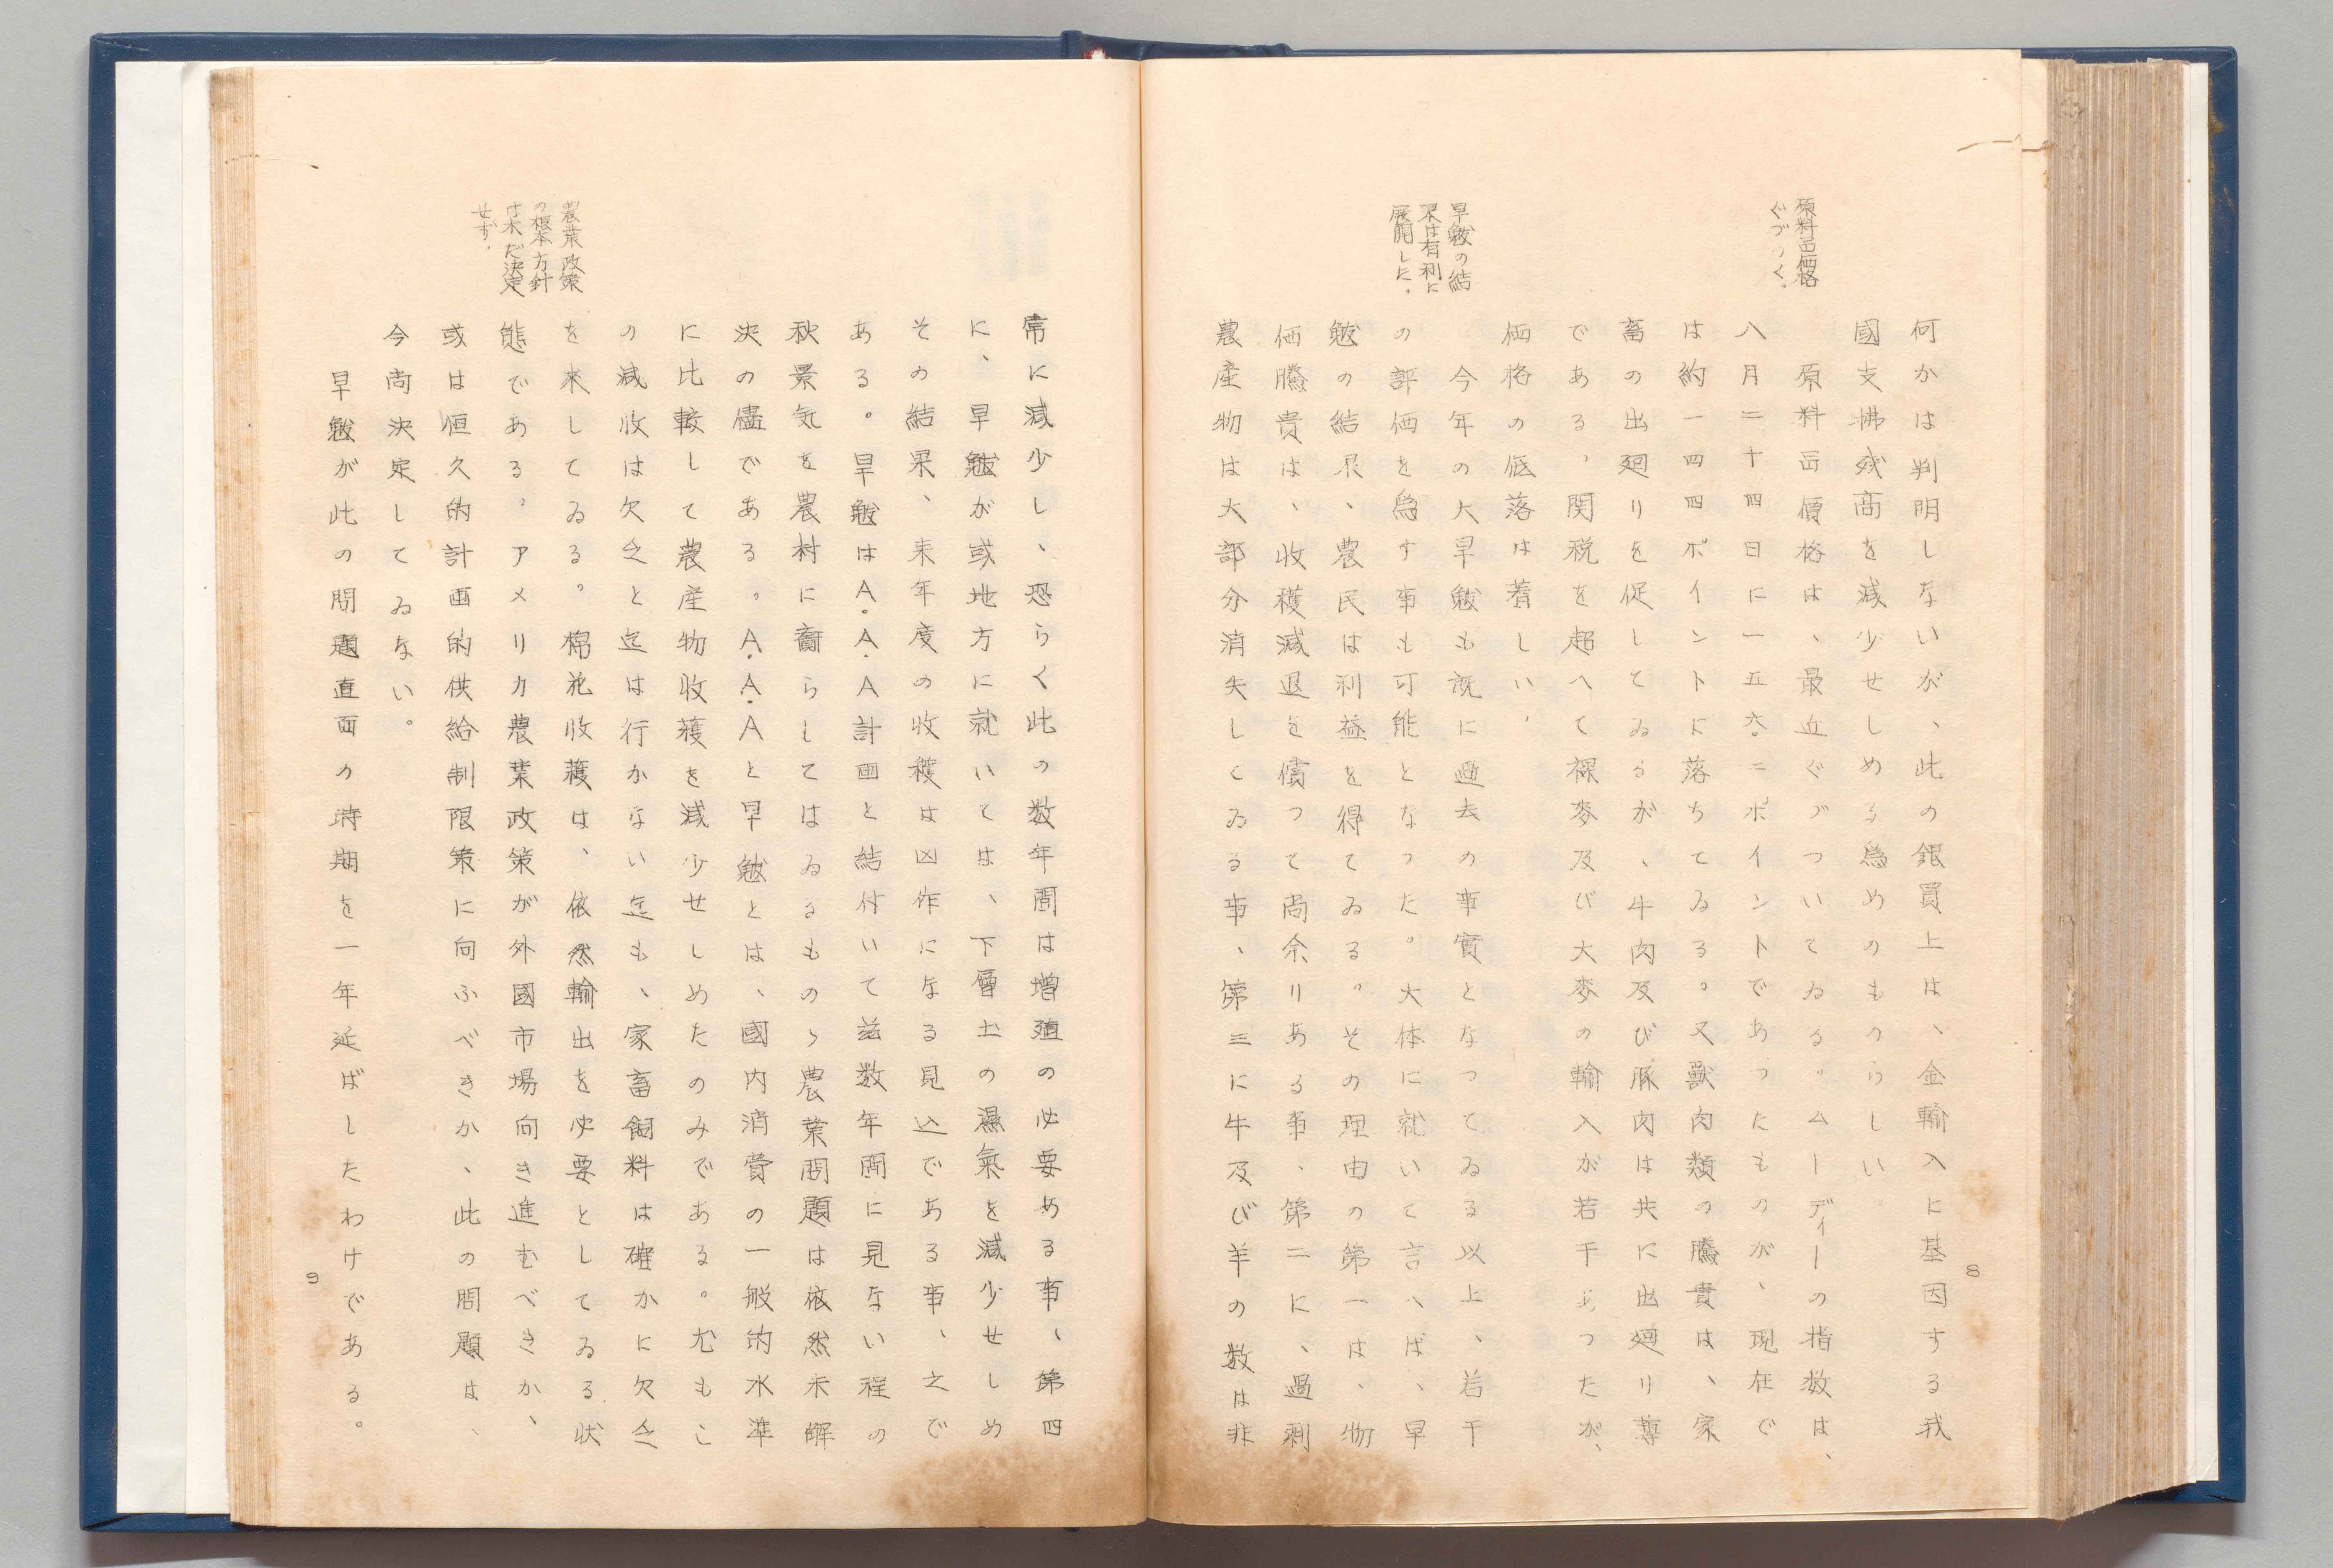 原料品価格
ぐづつく。
何かは判明しないが、此の銀買上は、金輸入に基因する我
國支拂残高を減少せしめる為めのものらしい。
原料品價格は、最近ぐづついてゐる。ムーディーの指数は、
八月二十四日に一五六・二ポイントであつたものが、現在で
は約一四四ポイントに落ちてゐる。又獣肉類の騰貴は、家
畜の出廻りを促してゐるが、牛肉及び豚肉は共に出廻り薄
である。関税を超へて裸麥及び大麥の輸入が若干あつたが、
価格の低落は着しい。
旱魃の結
果は有利に
展開した。
今年の大旱魃も既に過去の事實となつてゐる以上、若干
の評価を為す事も可能となつた。大体に就いて言へば、旱
魃の結果、農民は利益を得てゐる。その理由の第一は、物
価騰貴は、收穫減退を償つて尚余りある事、第二に、過剰
農産物は大部分消失してゐる事、第三に牛及び羊の数は非
8
常に減少し、恐らく此の数年間は増殖の必要ある事、第四
に、旱魃が或地方に就いては、下層土の濕氣を減少せしめ
その結果、来年度の收穫は凶作になる見込である事、之で
ある。旱魃はA.A.A計画と結付いて茲数年間に見ない程の
秋景気を農村に齎らしてはゐるものゝ農業問題は依然未解
決の儘である。A.A.Aと旱魃とは、國内消費の一般的水準
に比較して農産物收穫を減少せしめたのみである。尤もこ
の減收は欠乏と迄は行かない迄も、家畜飼料は確かに欠乏
を来してゐる。棉花收穫は、依然輸出を必要としてゐる状
農業政策
の根本方針
は未だ決定
せず。
態である。アメリカ農業政策が外國市場向き進むべきか、
或は恒久的計画的供給制限策に向ふべきか、此の問題は、
今尚決定してゐない。
旱魃が此の問題直面の時期を一年延ばしたわけである。
9